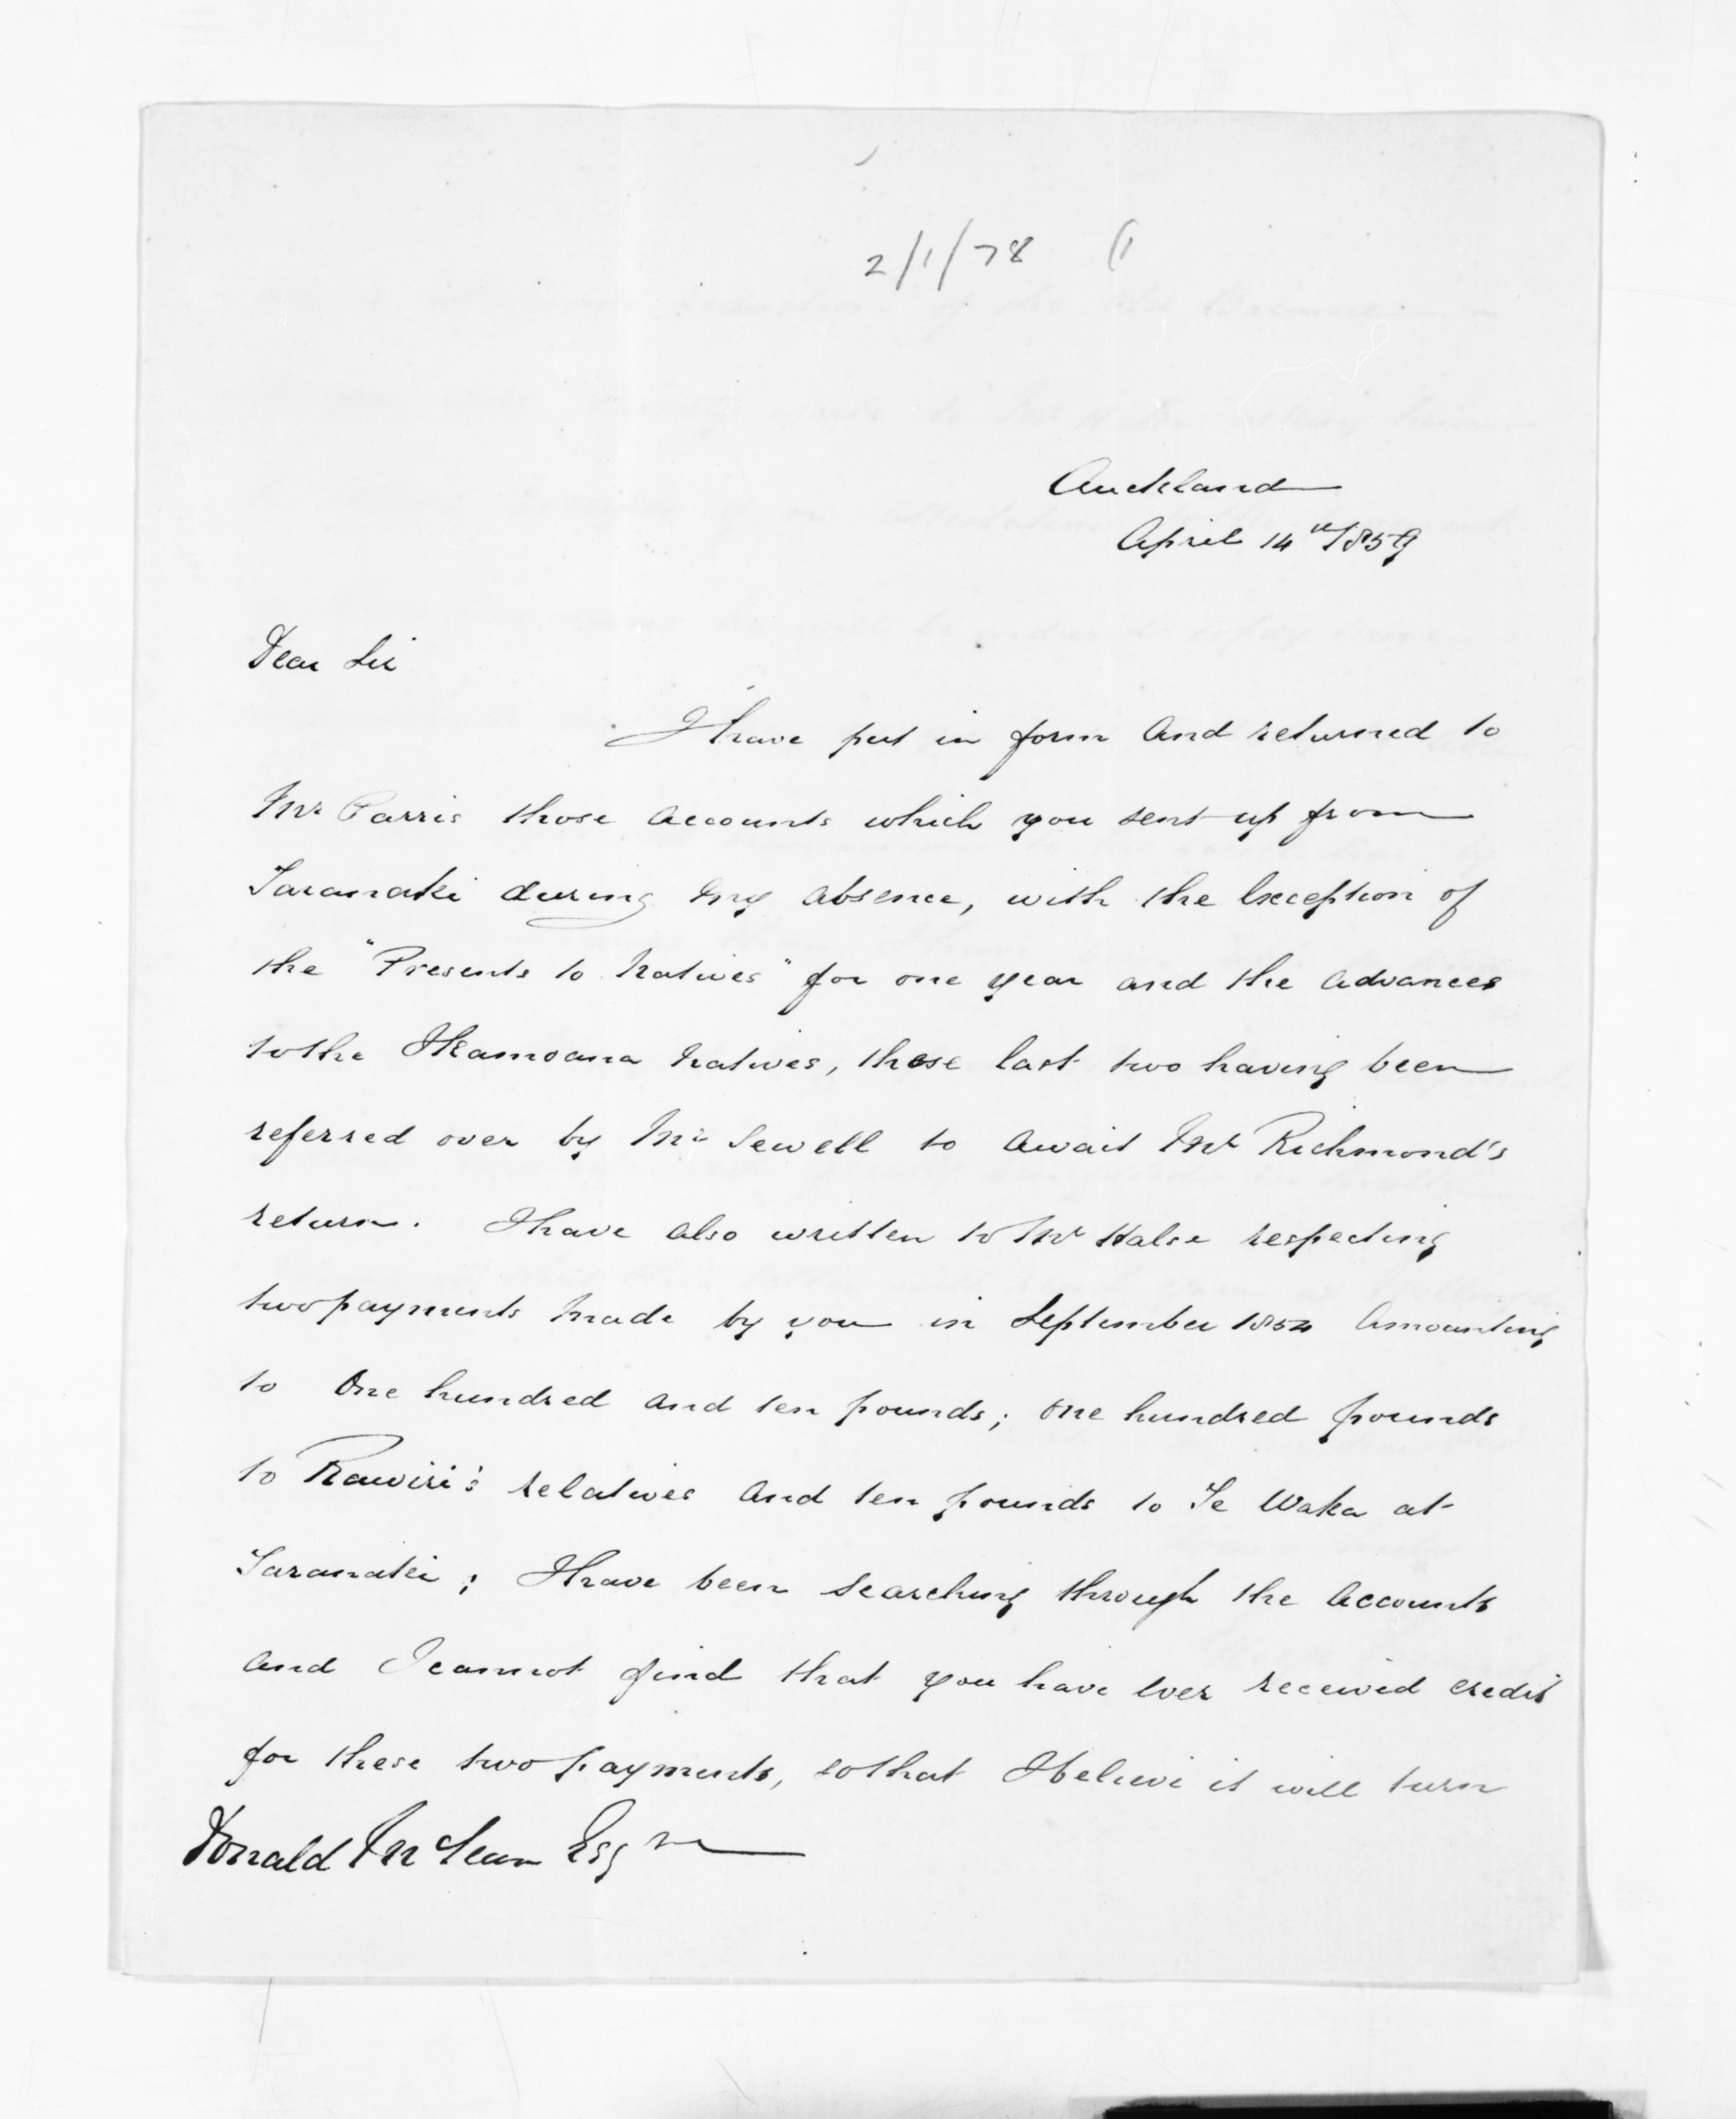 2/1/78 (1
Auckland
April 14th 1859
Dear Sir
I have put in form and returned to
Mr Parris those accounts which you sent up from
Taranaki during my absence, with the exception of
the "Presents to Natives" for one year and the advances
to the Ikamoana Natives, these last two having been
referred over by Mr Sewell to await Mr Richmond's
return. I have also written to Mr Halse respecting
two payments made by you in September 1854 amounting
to One hundred and ten pounds; one hundred pounds
to Rawiri's relatives and ten pounds to Te Waka at
Taranaki; I have been searching through the accounts
and I cannot find that you have ever received credit
for these two payments, so that I believe it will turn
Donald McLean Esqre